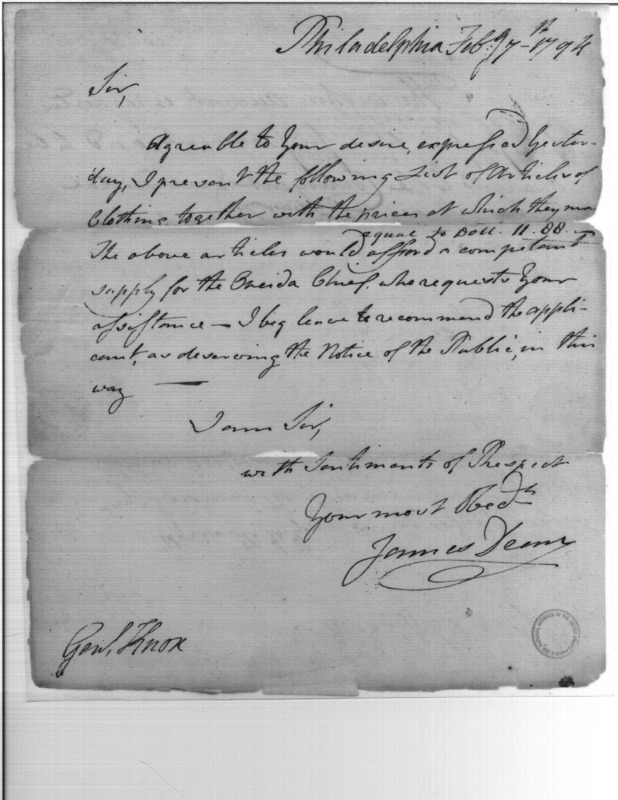 Philadelphia Feby 7th 1794
Sir,
Agreable to Your desire, expressed Yester-
day, I present the following List of Articles of
Clothing, together with the prices at which they may
equal to Doll. 11.88
The above articles would afford a competent
supply for the Oneida Chief, who requests Your
assistance — I beg leave to recommend the appli-
cant, as deserving the Notice of the Public, in this
way —
I am Sir,
with Sentiments of Respect
Your most Obedt
James Dean
Genl. Knox